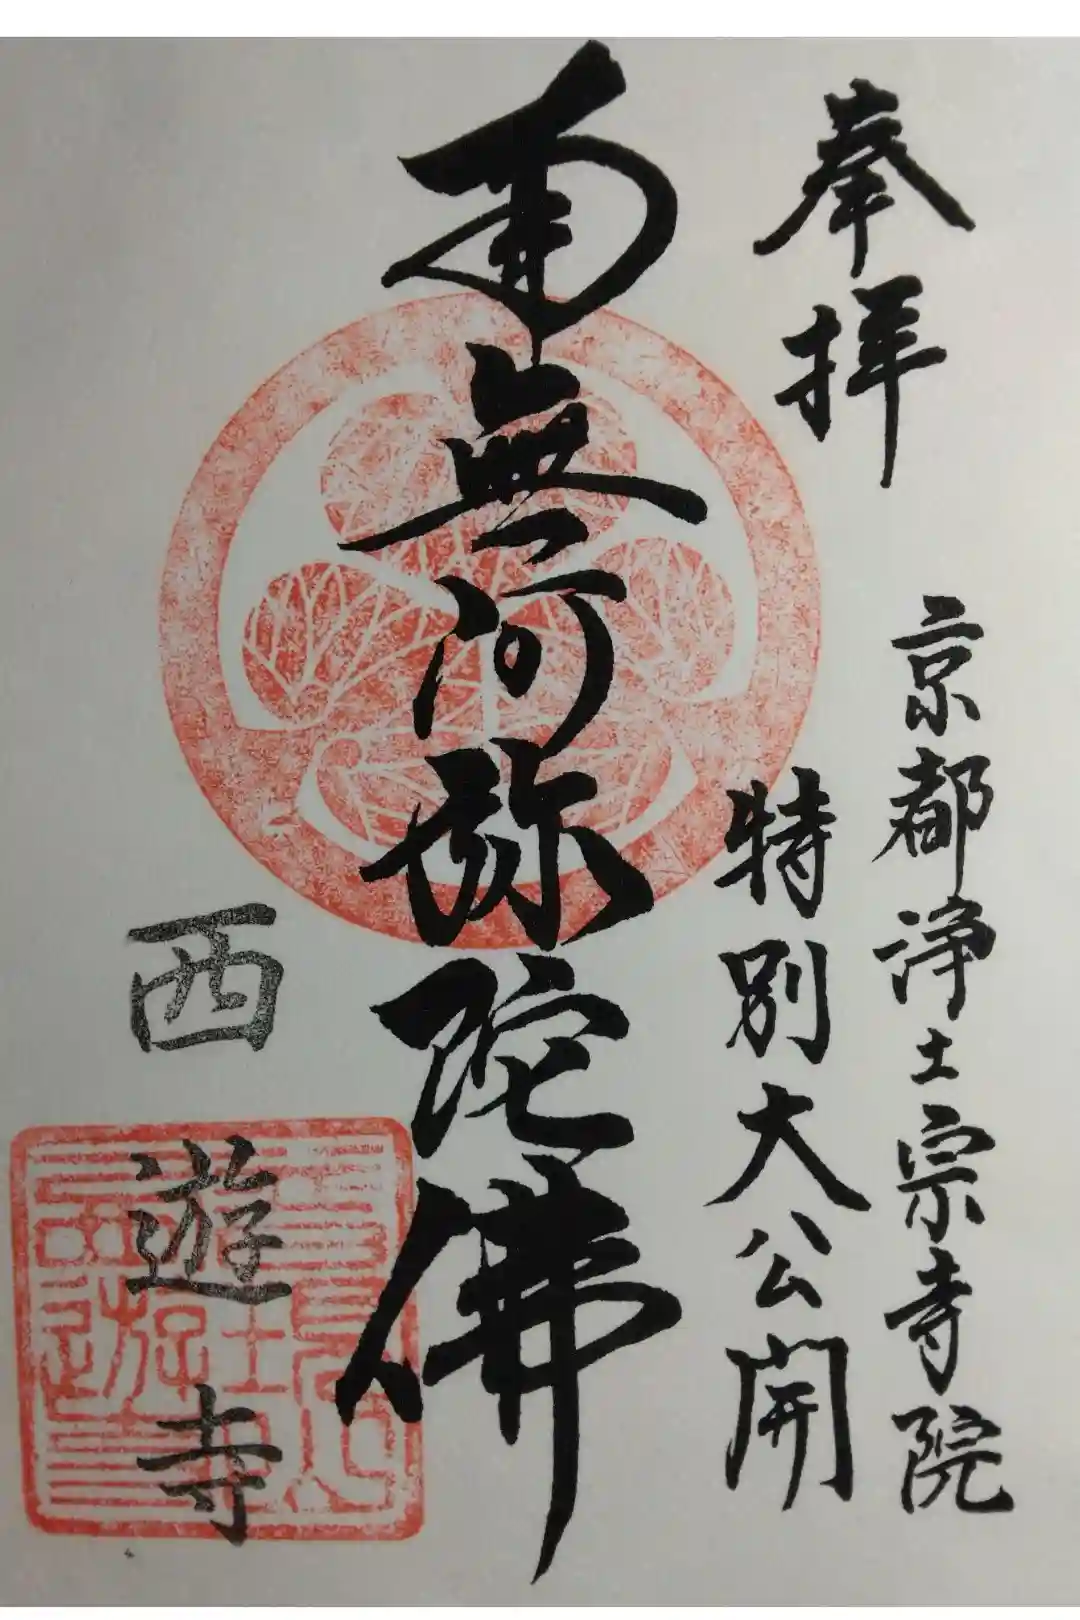 奉拝
京都浄土宗寺院
特別大公開
南無阿弥陀佛
西遊寺